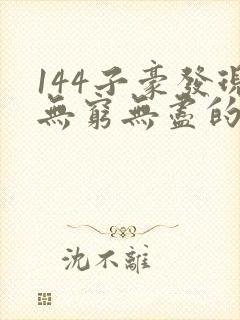 144子豪發現
無窮無盡的
沈不離